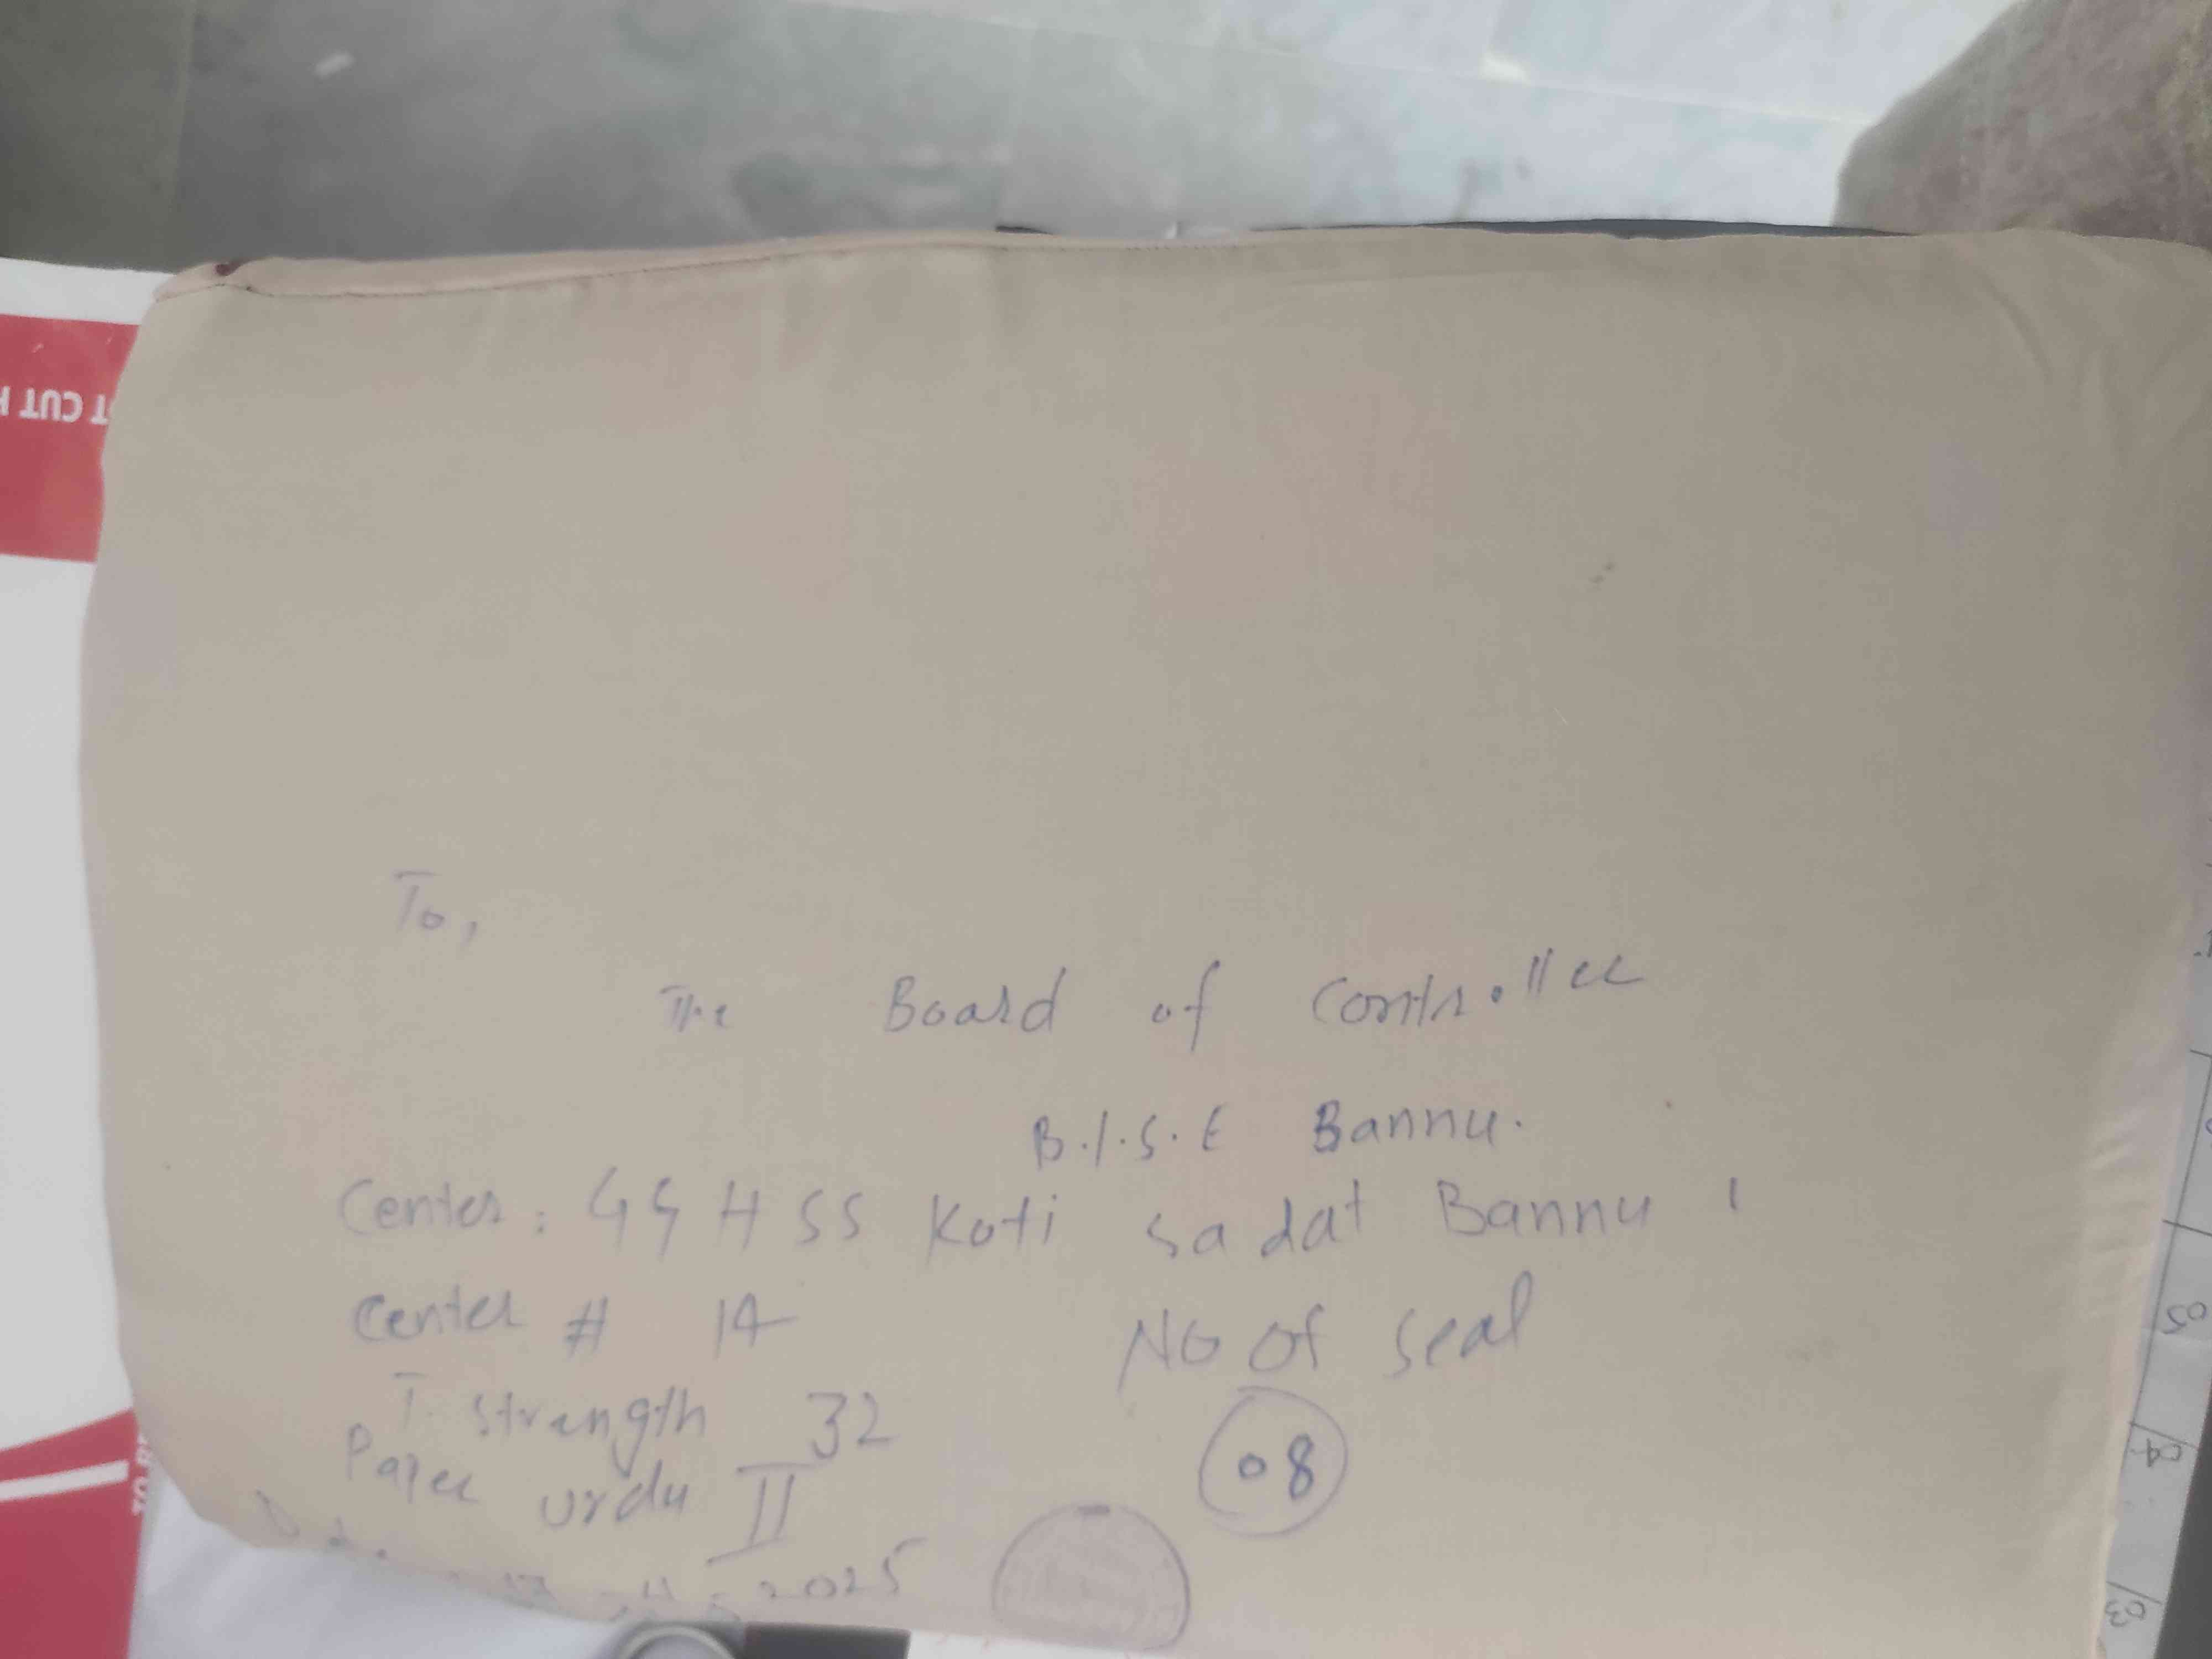 To,
The Board of Controller
B.I.S.E Bannu.
Center: GGHSS Koti sadat Bannu
Center # 14
NO Of Seal
T. Strength 32
08
Paper urdu II
2025
T CUT H
05
04
03